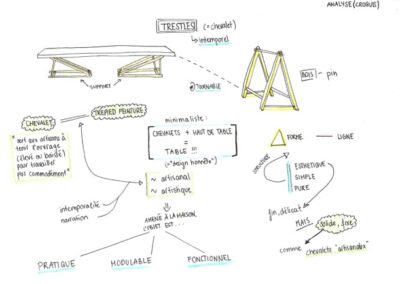 ANALYSE (CROQUIS)
TRESTLES (= chevalet)
↳ intemporel
SUPPORT
TOURNABLE
BOIS - pin
CHEVALET
TRÉPIED PEINTURE
"sert aux artisans à
tenir l'ouvrage
(élevé ou basculé)
pour travailler
plus commodément"
minimaliste :
CHEVALETS + HAUT DE TABLE
=
TABLE !!!
(="design honnête")
~ artisanal
~ artistique
intemporalité
narration
AMENÉ À LA MAISON,
L'OBJET EST ...
PRATIQUE
MODULABLE
FONCTIONNEL
FORME
LIGNE
STRUCTURE
ESTHÉTIQUE
SIMPLE
PURE
fin, délicat
MAIS
solide, fixe
comme chevalets "artisanaux"